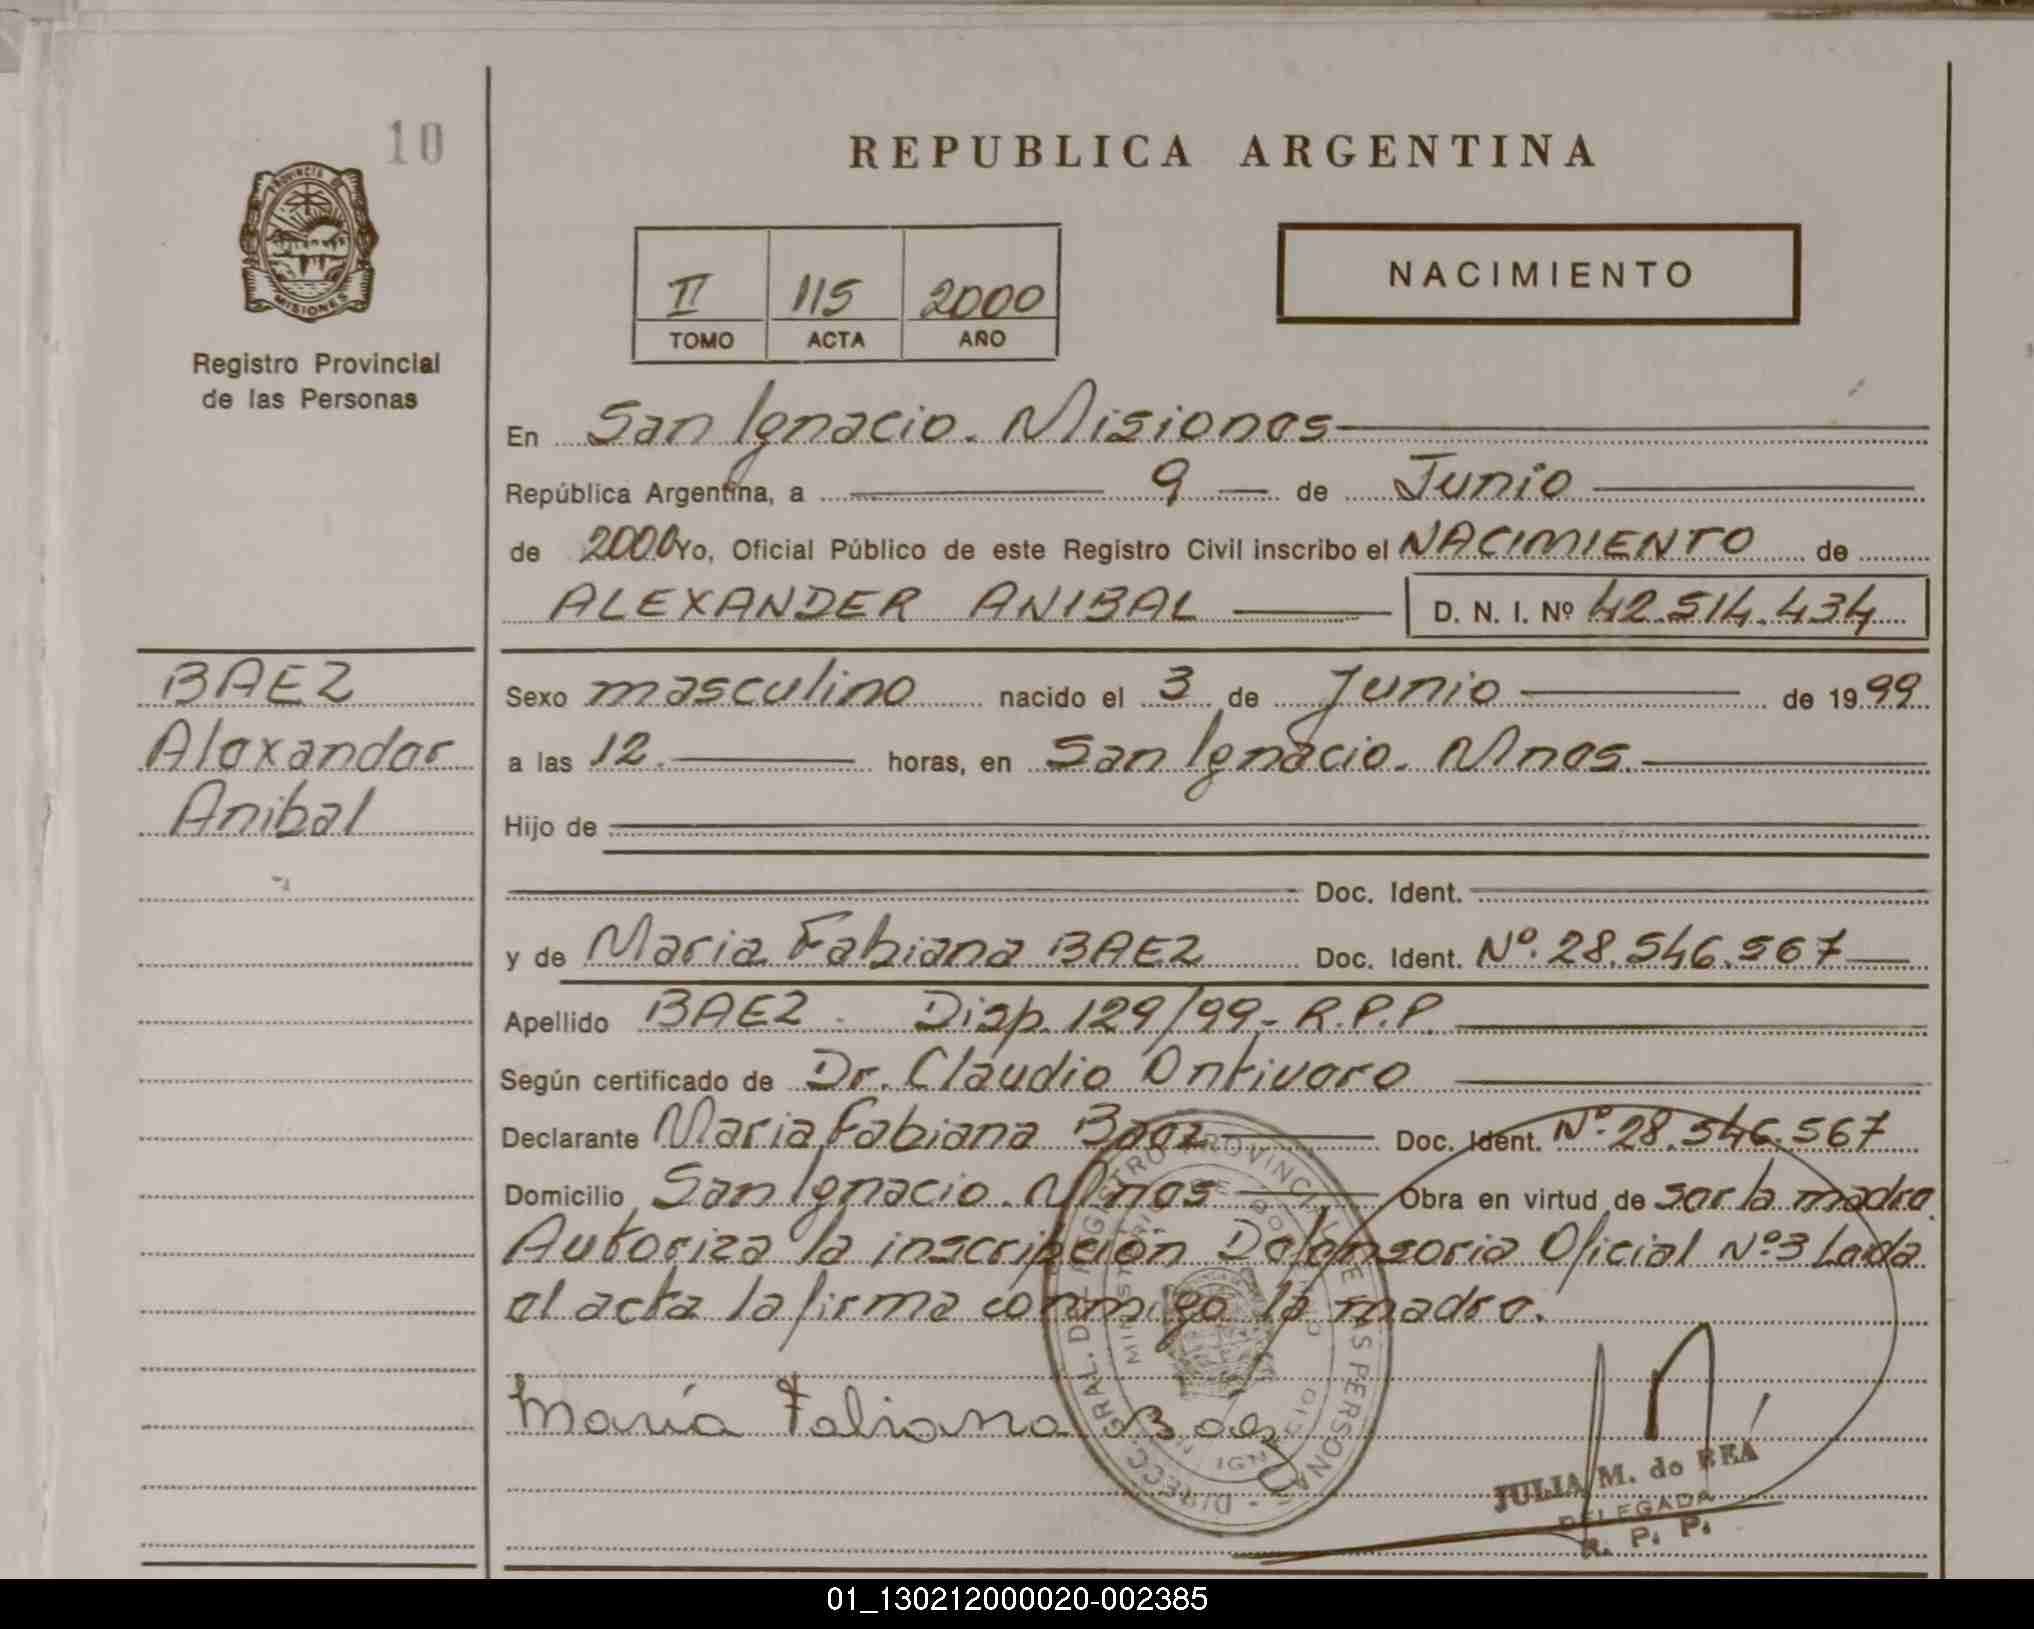 10
REPUBLICA ARGENTINA
PROVINCIA DE
MISIONES
Registro Provincial
de las Personas
II 115 2000
TOMO ACTA AÑO
NACIMIENTO
En San Ignacio. Misiones
República Argentina, a 9 de Junio
de 2000 Yo, Oficial Público de este Registro Civil inscribo el NACIMIENTO de
ALEXANDER ANIBAL D. N. I. Nº 42.514.434
BAEZ
Alexander
Anibal
Sexo masculino nacido el 3 de Junio de 1999
a las 12. horas, en San Ignacio. Mnes.
Hijo de
Doc. Ident.
y de Maria Fabiana BAEZ Doc. Ident. Nº.28.546.567
Apellido BAEZ. Disp. 129/99.- R.P.P.
Según certificado de Dr. Claudio Ontivero
Declarante Maria Fabiana Baez Doc. Ident. Nº.28.546.567
Domicilio San Ignacio. Mnes Obra en virtud de ser la madre.
Autoriza la inscripción Defensoria Oficial Nº3 Leida
el acta la firma conmigo la madre.
María Fabiana Baez
DIRECC. GRAL. DE REGISTRO PROVINCIAL DE LAS PERSONAS
JULIA M. do REÁ
DELEGADA
R. P. P.
01_130212000020-002385